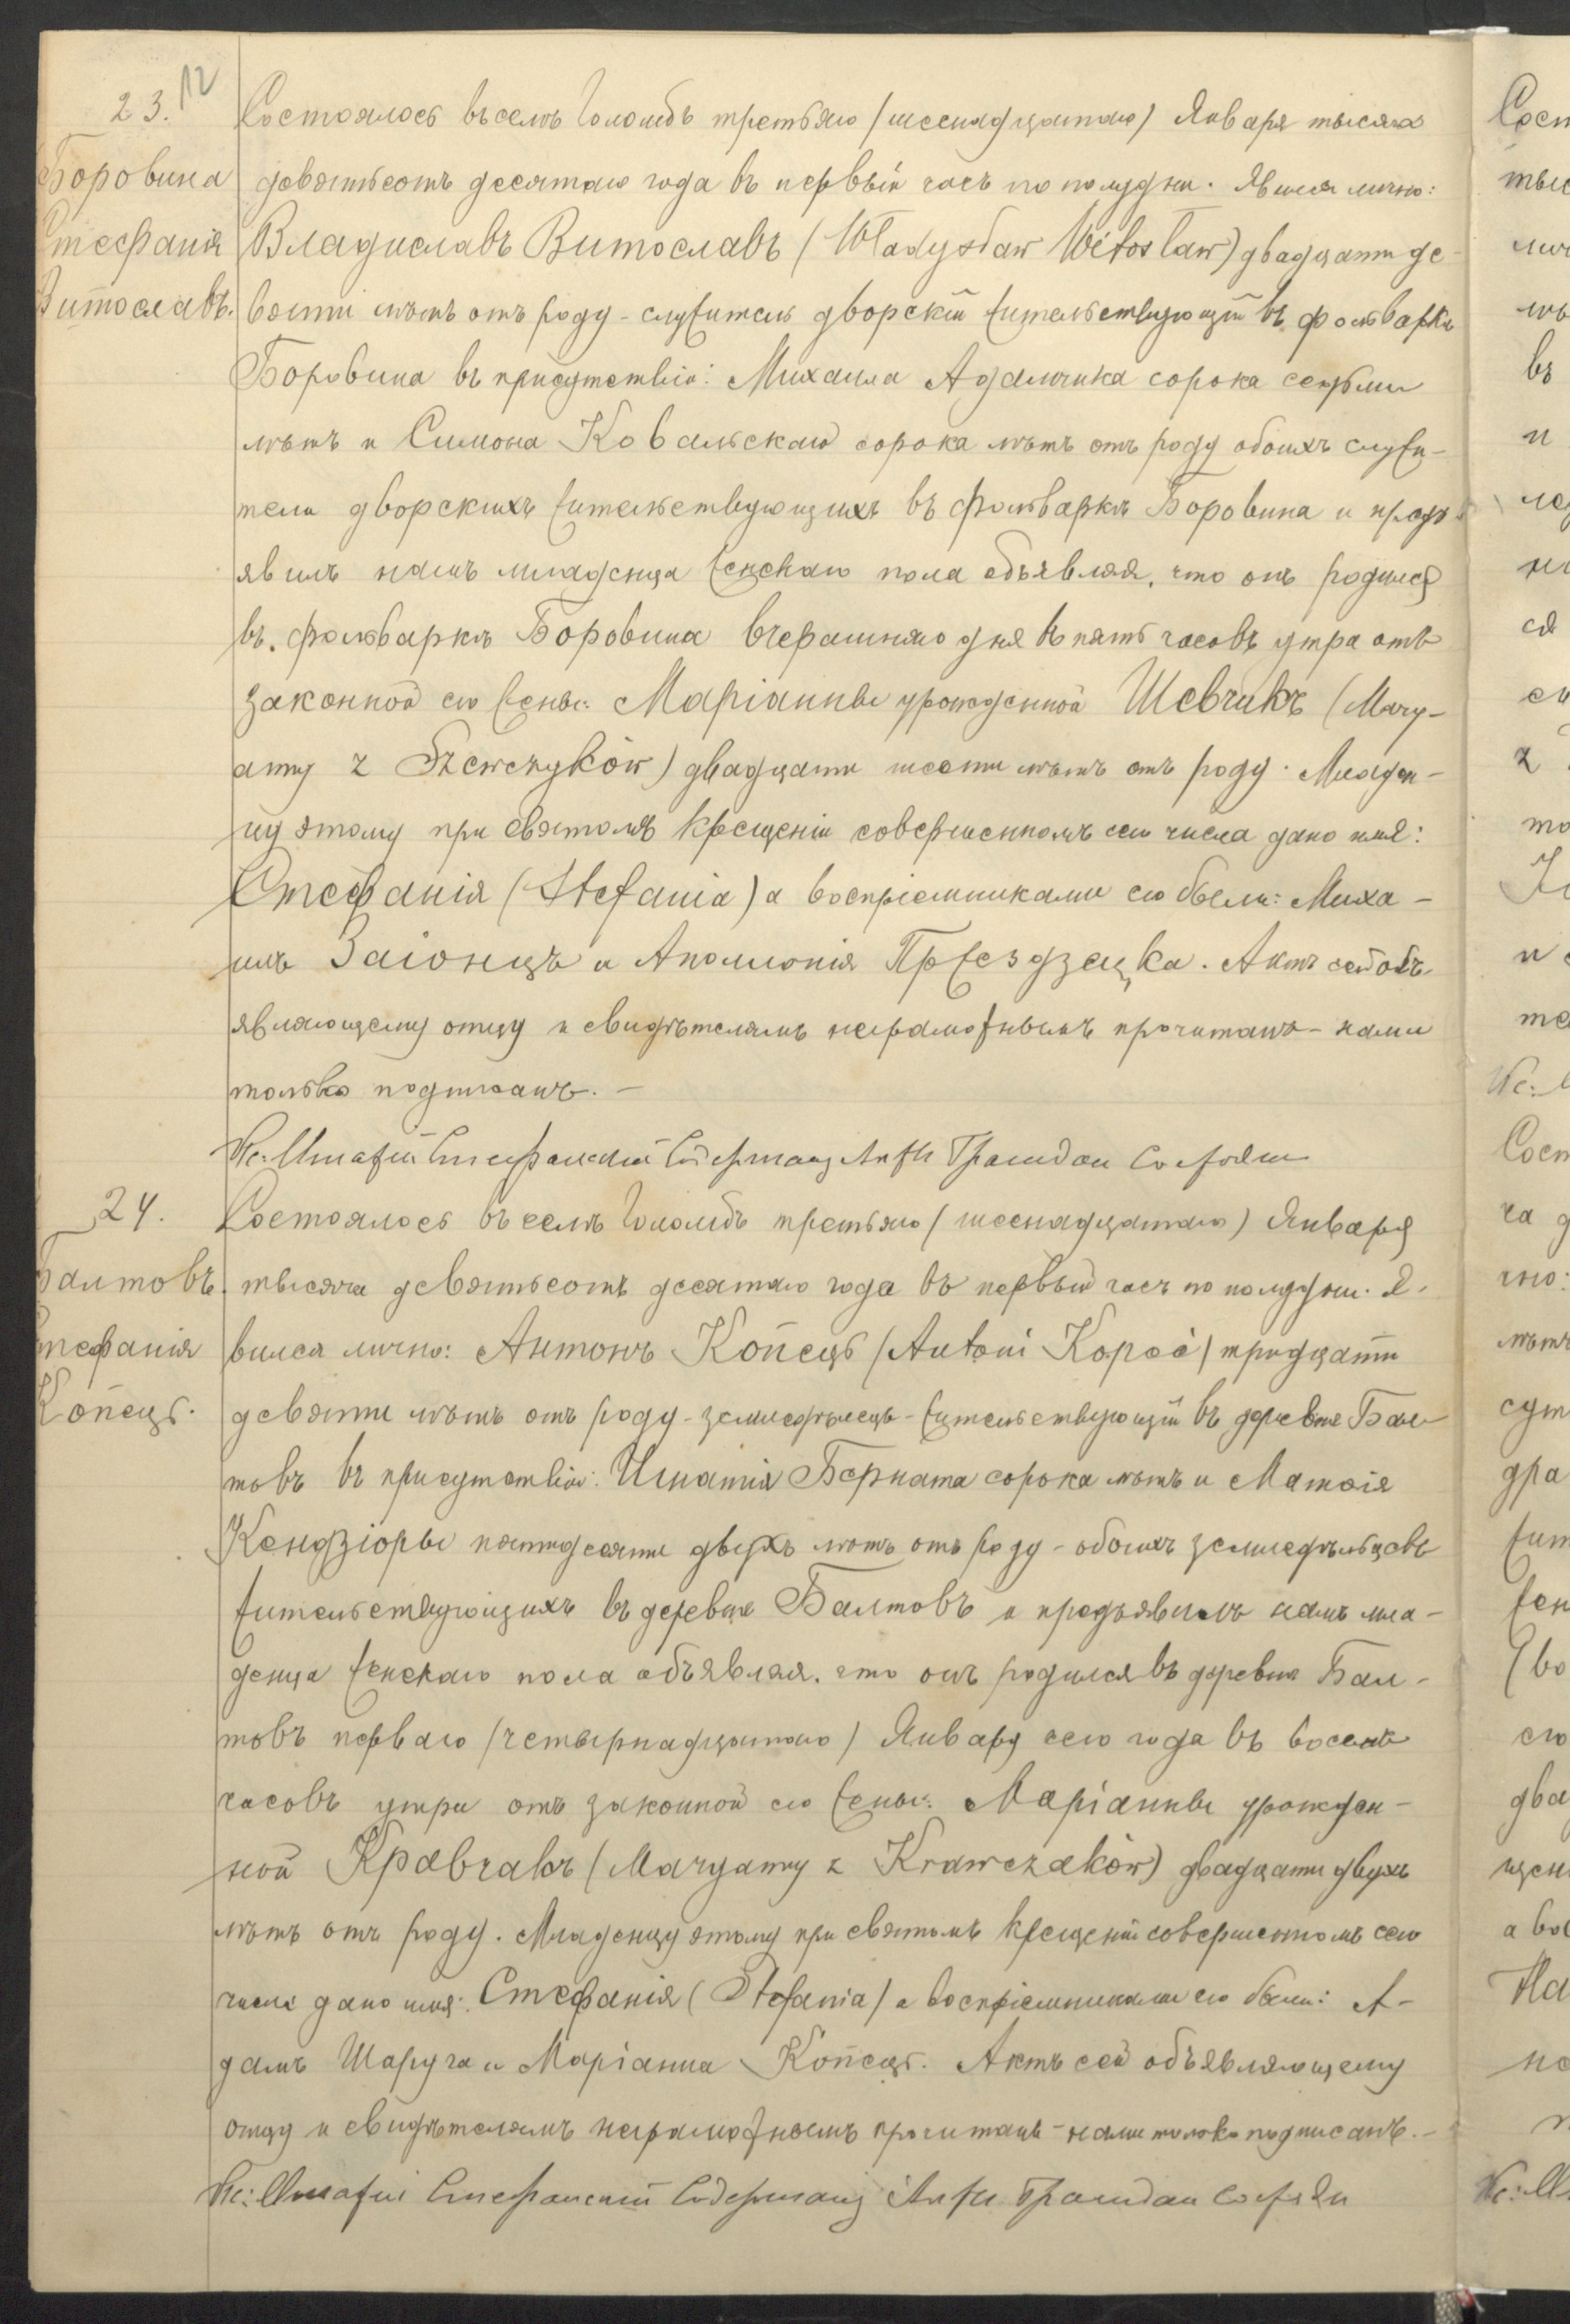 23. 12
Боровина
Стефанія
Витославъ.
Состоялось въ селѣ Голомбъ третьяго (шеснадцатаго) Января тысяча
девятьсотъ десятаго года въ первый часъ по полудни. Явился лично:
Владиславъ Витославъ (Władysław Witosław) двадцати де-
вяти лѣтъ отъ роду - служитель дворскій жительствующій въ фольваркѣ
Боровина въ присутствіи: Михаила Адамчика сорока семьми
лѣтъ и Симона Ковальскаго сорока лѣтъ отъ роду обоихъ служи-
тели дворскихъ жительствующихъ въ фольваркѣ Боровина и предъ-
явилъ намъ младенца женскаго пола объявляя, что онъ родился
въ фольваркѣ Боровина вчерашняго дня въ пять часовъ утра отъ
законной его жены: Маріанны урожденной Шевчикъ (Mary-
anny z Szewczyków) двадцати шести лѣтъ отъ роду. Младен-
цу этому при святомъ крещеніи совершенномъ сего числа дано имя:
Стефанія (Stefania) а воспріемниками его были: Миха-
илъ Заіонцъ и Аполлонія Пржездзецка. Актъ сей объ-
являющему отцу и свидѣтелямъ неграмотнымъ прочитанъ - нами
только подписанъ. -
Кс: Игнатій Стефанскій Содержащ Акты Граждан Состоян
24.
Балтовъ
Стефанія
Копець.
Состоялось въ селѣ Голомбъ третьяго (шеснадцатаго) Января
тысяча девятьсотъ десятаго года въ первый часъ по полудни. Я-
вился лично: Антонъ Копець (Antoni Kopeć) тридцати
девяти лѣтъ отъ роду - земледѣлецъ - жительствующій въ деревнѣ Бал-
товъ въ присутствіи: Игнатія Берната сорока лѣтъ и Матвія
Кендзіоры пятидесяти двухъ лѣтъ отъ роду - обоихъ земледѣльцевъ
жительствующихъ въ деревнѣ Балтовъ и предъявилъ намъ мла-
денца женскаго пола объявляя, что онъ родился въ деревнѣ Бал-
товъ перваго (четырнадцатаго) Января сего года въ восемь
часовъ утра отъ законной его жены: Маріанны урожден-
ной Кравчакъ (Maryanny z Krawczaków) двадцати двухъ
лѣтъ отъ роду. Младенцу этому при святомъ крещеніи совершенномъ сего
числа дано имя: Стефанія (Stefania) а воспріемниками его были: А-
дамъ Шаруга и Маріанна Копець. Актъ сей объявляющему
отцу и свидѣтелямъ неграмотнымъ прочитанъ - нами только подписанъ. -
Кс: Игнатій Стефанскій Содержащ Акты Граждан Состоян